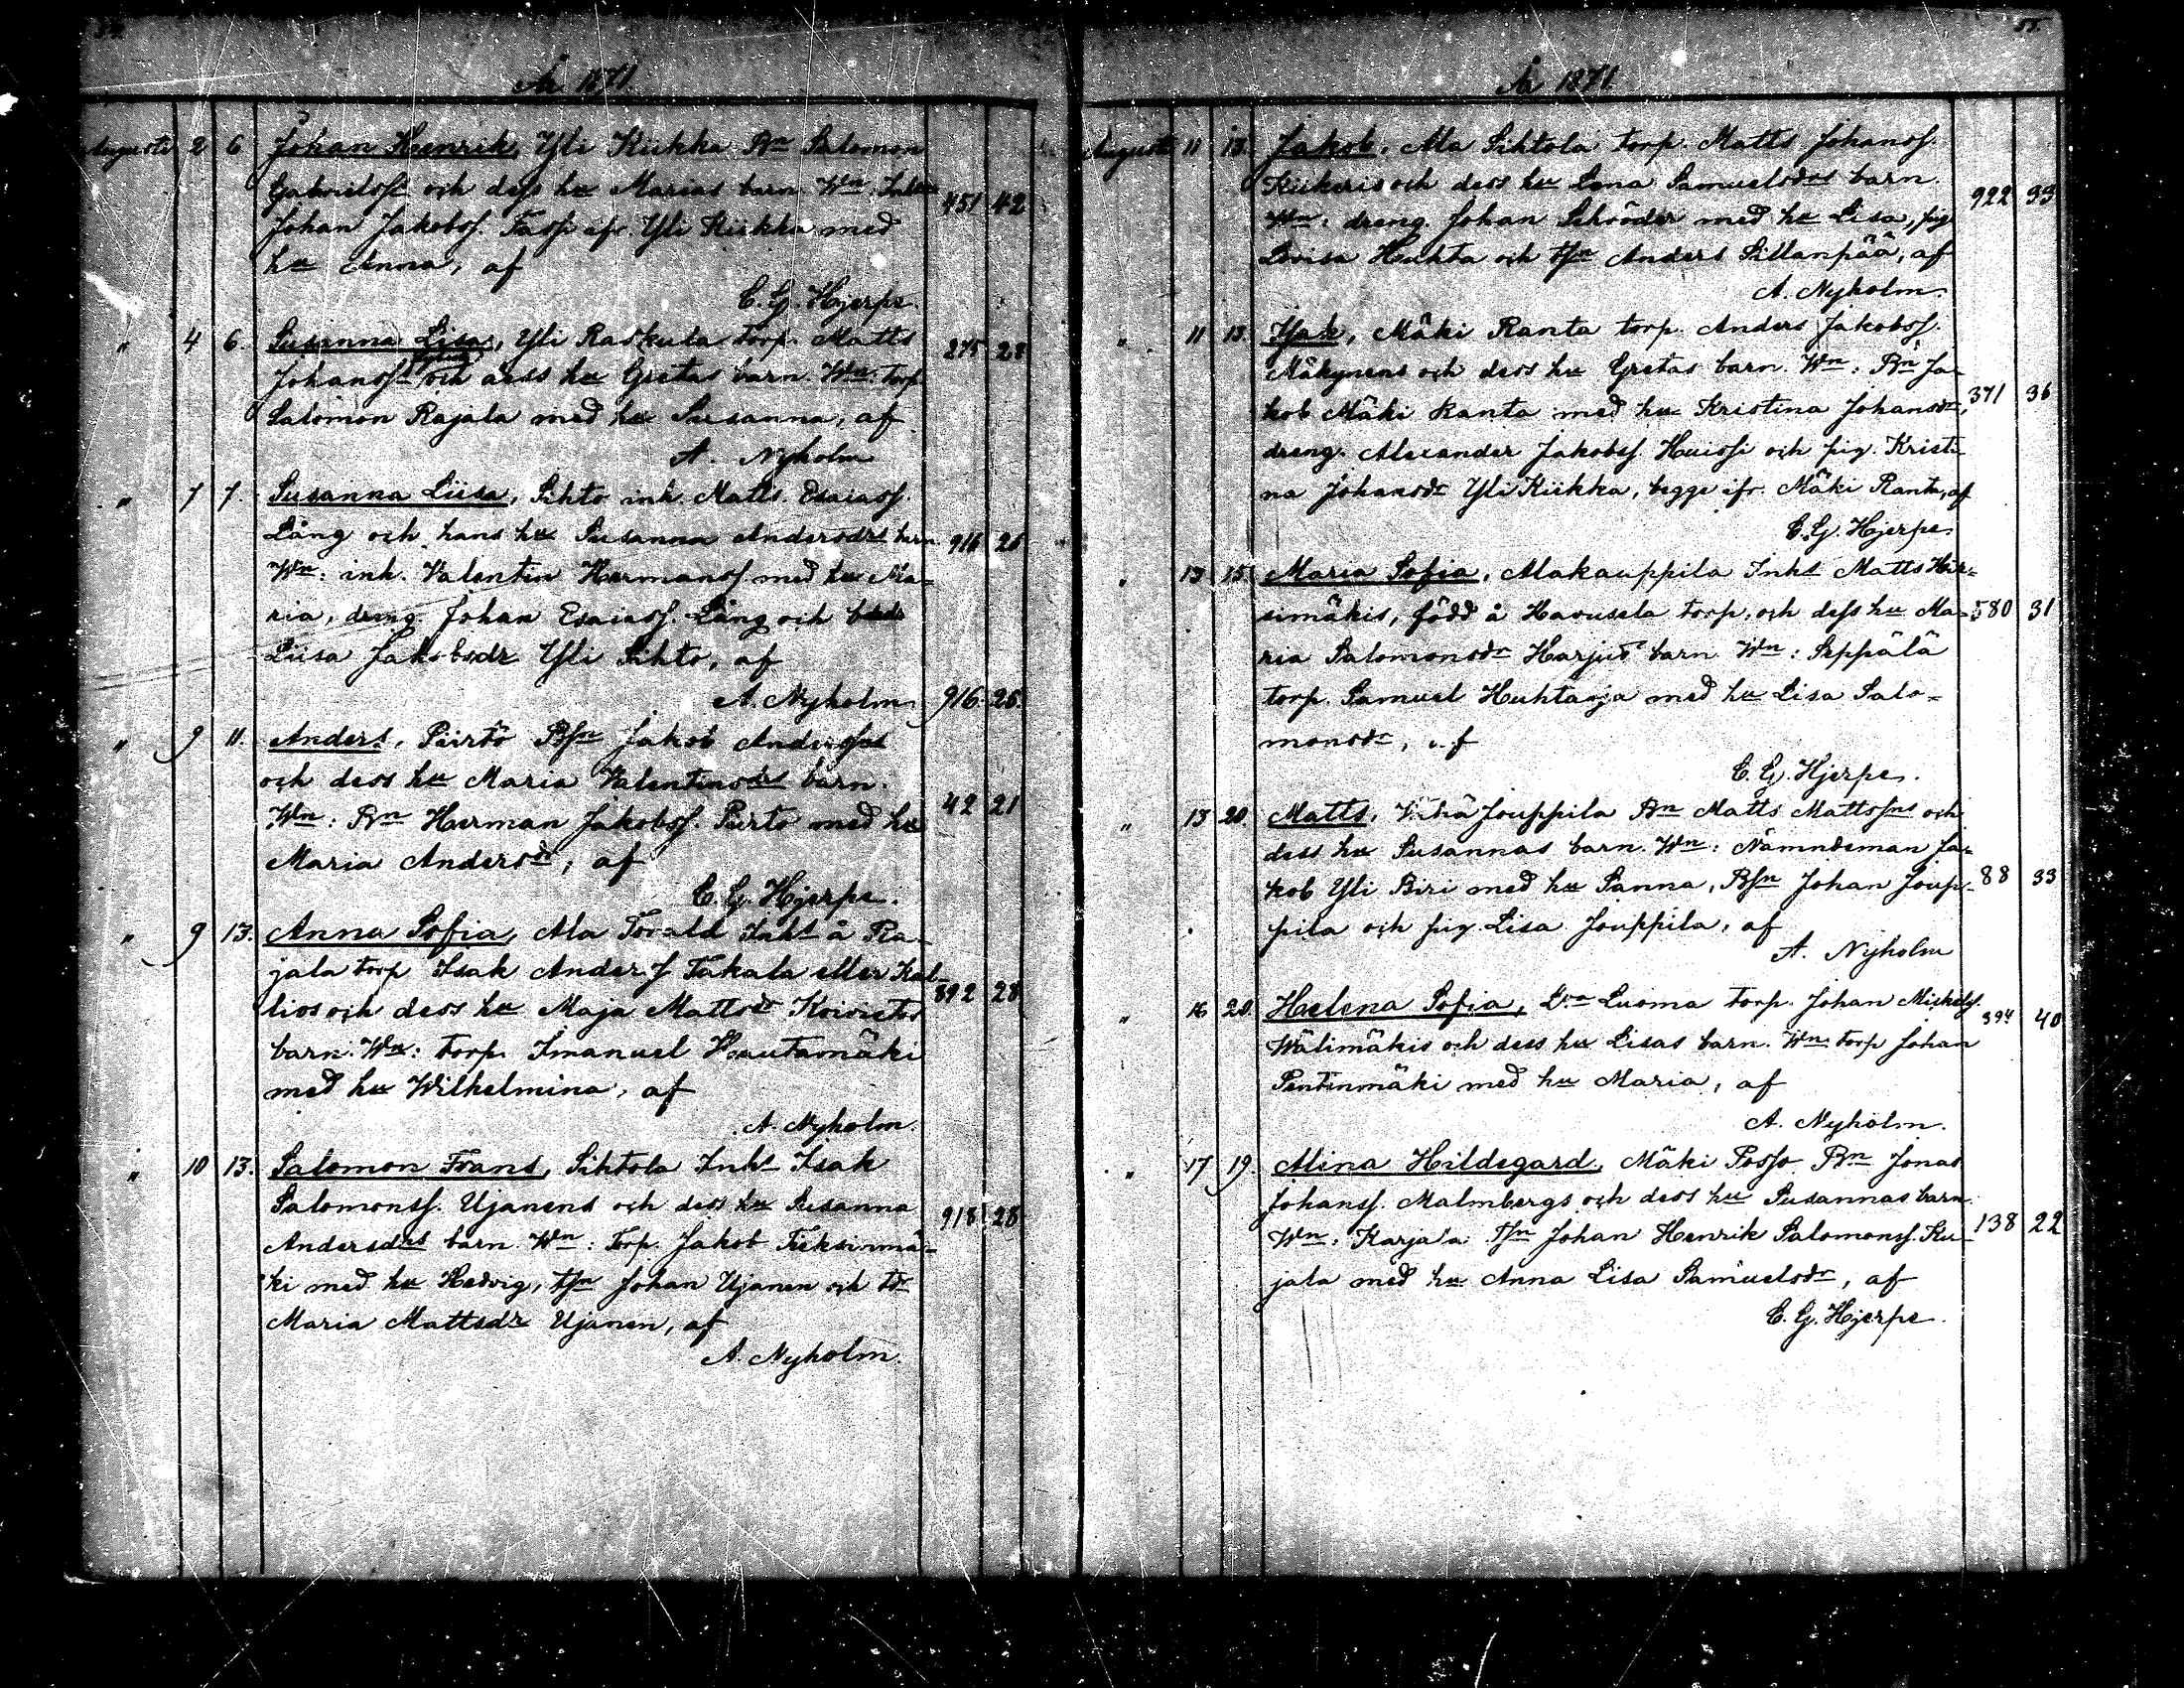 År 1871.
Augusti 2 6 Johan Henrik, Yli Kiikka Bn Salomon
Gabrielssns och dess hu Marias barn. Wn:
451 42
Johan Jakobss. Tassi ifr. Yli Kiikka med
hu Anna, af
C. G. Hjerpe.
" 4 6. Susanna Lisa, Yli Raskula torp. Matts
275 28
Johanss och dess hu Gretas barn. Wn: torp
Salomon Rajala med hu Susanna, af
A. Nyholm
" 7 7. Susanna Liisa, Sihto inh. Matts Esaiass.
Lång och hans hu Susanna Andersdrs barn.
916 26
Wn: inh. Valentin Hermanss med hu Ma-
ria, dreng Johan Esaiass. Lång och
Liisa Jakobsdr Yli Sihto, af
A. Nyholm. 916. 26.
" 9 11. Anders, Piirto Bsn Jakob Anderssns
och dess hu Maria Valentinsdrs barn.
42 21
Wn: Bn Herman Jakobss. Piirto med hu
Maria Andersdr, af
C. G. Hjerpe.
" 9 13. Anna Sofia, Ala Torald Inhs å Ra-
jala torp Isak Anders Takala eller Kal-
892 28
lios och dess hu Maja Mattsdr Koivistos
barn. Wn: torp. Imanuel Hautamäki
med hu Wilhelmina, af
A. Nyholm.
" 10 13. Salomon Frans, Sihtola Inhs Isak
Salomonss. Ujanens och dess hu Susanna
918 28
Andersdrs barn. Wn: Torp. Jakob Tieksinmä-
ki med hu Hedvig, tsn Johan Ujanen och tdr
Maria Mattsdr Ujanen, af
A. Nyholm.
55.
År 1871.
Augusti 11 13. Jakob, Ala Sihtola torp. Matts Johanss.
Kiikeris och dess hu Lena Samuelsdrs barn.
922 33
Wn: dreng. Johan Schröder med hu Lisa, pig
Lovisa Huhta och tsn Anders Sillanpää, af
A. Nyholm.
" 11 13. Isak, Mäki Ranta torp. Anders Jakobss.
Mäkynens och dess hu Gretas barn. Wn: Bn Ja-
371 36
kob Mäki Ranta med hu Kristina Johansdr,
dreng. Alexander Jakobss. Huissi och pig. Kristi-
na Johansdr Yli Kiikka, begge ifr. Mäki Ranta, af
C. G. Hjerpe.
" 13 15. Maria Sofia, Alakauppila Inhs Matts Hir-
simäkis, född å Havusela torp, och dess hu Ma-
580 31
ria Salomonsdr Harjus barn. Wn: Seppälä
torp. Samuel Huhtaoja med hu Lisa Salo-
monsdr, af
C. G. Hjerpe.
" 13 20. Matts, Vähä Jouppila Bn Matts Mattssns och
dess hu Susannas barn. Wn: Nämndeman Ja-
88 33
kob Yli Biri med hu Sanna, Bsn Johan Joup-
pila och pig. Lisa Jouppila, af
A. Nyholm
" 16 20. Helena Sofia, Luoma torp. Johan Mickelss.
394 40
Wälimäkis och dess hu Lisas barn. Wn: torp Johan
Pentinmäki med hu Maria, af
A. Nyholm.
" 17 19. Alina Hildegard, Mäki Passo Bn Jonas
Johanss. Malmbergs och dess hu Susannas barn.
138 22
Wn: Karjala Tsn Johan Henrik Salomonss. Ku-
jala med hu Anna Lisa Samuelsdr, af
C. G. Hjerpe.